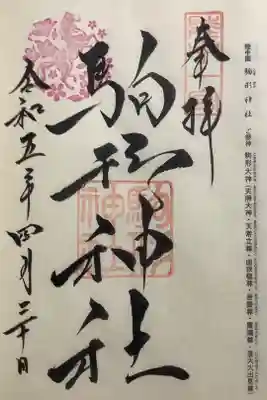 陸中國 駒形神社 ご祭神 駒形大神(天照大神・天常立尊・國狭槌尊・吾勝尊・置瀬尊・彦火火出見尊)
奉拝
駒形神社
駒形神社
令和五年四月三十日